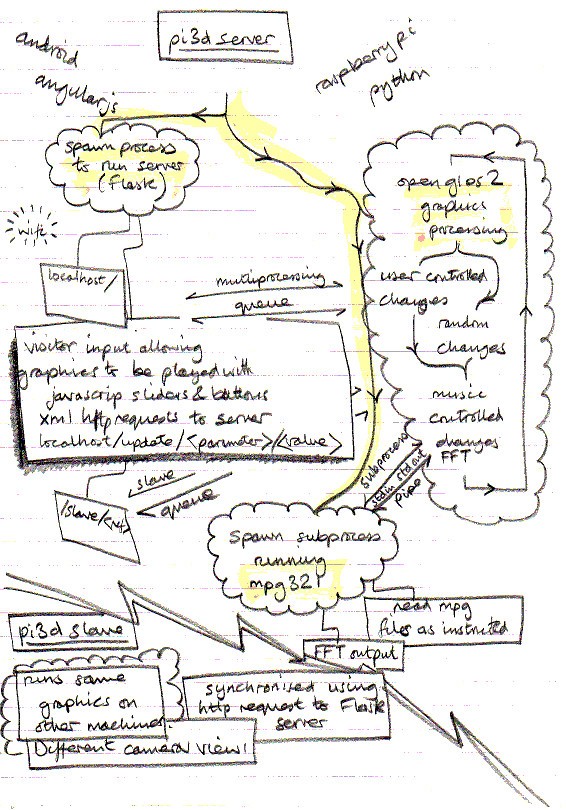 pi3d server
android
angularjs
raspberry pi
python
spawn process
to run server
(Flask)
wifi
localhost/
multiprocessing
queue
open gles 2
graphics
processing
user controlled
changes
random
changes
music
controlled
changes
FFT
visitor input allowing
graphics to be played with
javascrip sliders & buttons
xml http requests to server
localhost/update/<parameter>/<value>
subprocess
stdin stdout
pipe
slave
queue
/slave/<ref>
Spawn subprocess
running
mpg321
read mpg
files as instructed
FFT output
pi3d slave
runs same
graphics on
other machines.
Different camera view!
synchronised using
http request to Flask
server